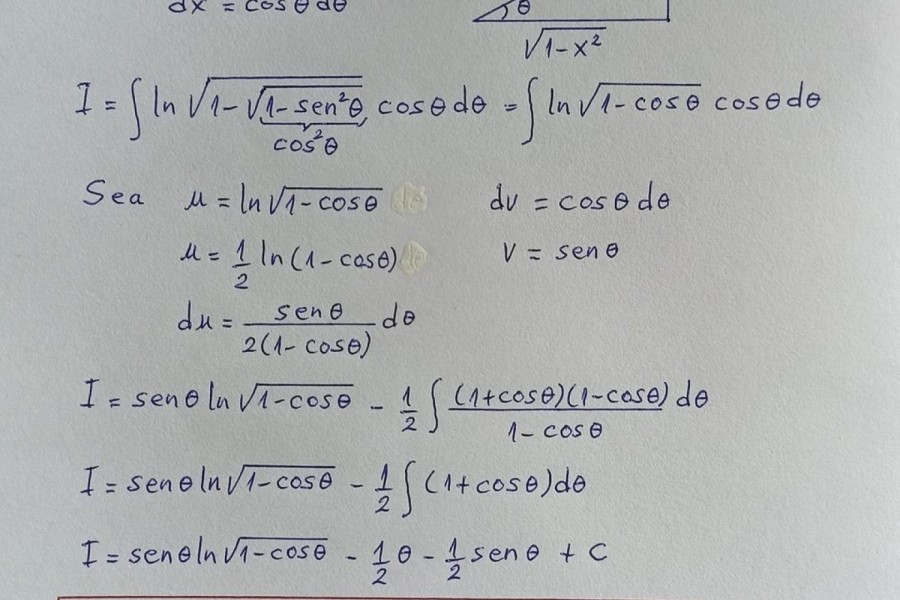 dx = cosθ dθ
θ
√1-x²
I = ∫ ln √1-√1-sen²θ cosθ dθ = ∫ ln √1-cosθ cosθ dθ
cos²θ
Sea μ = ln √1-cosθ dv = cosθ dθ
μ = 1/2 ln (1-cosθ) v = senθ
dμ = senθ/2(1-cosθ) dθ
I = senθ ln √1-cosθ - 1/2 ∫ (1+cosθ)(1-cosθ)/1-cosθ dθ
I = senθ ln √1-cosθ - 1/2 ∫ (1+cosθ)dθ
I = senθ ln √1-cosθ - 1/2 θ - 1/2 senθ + C